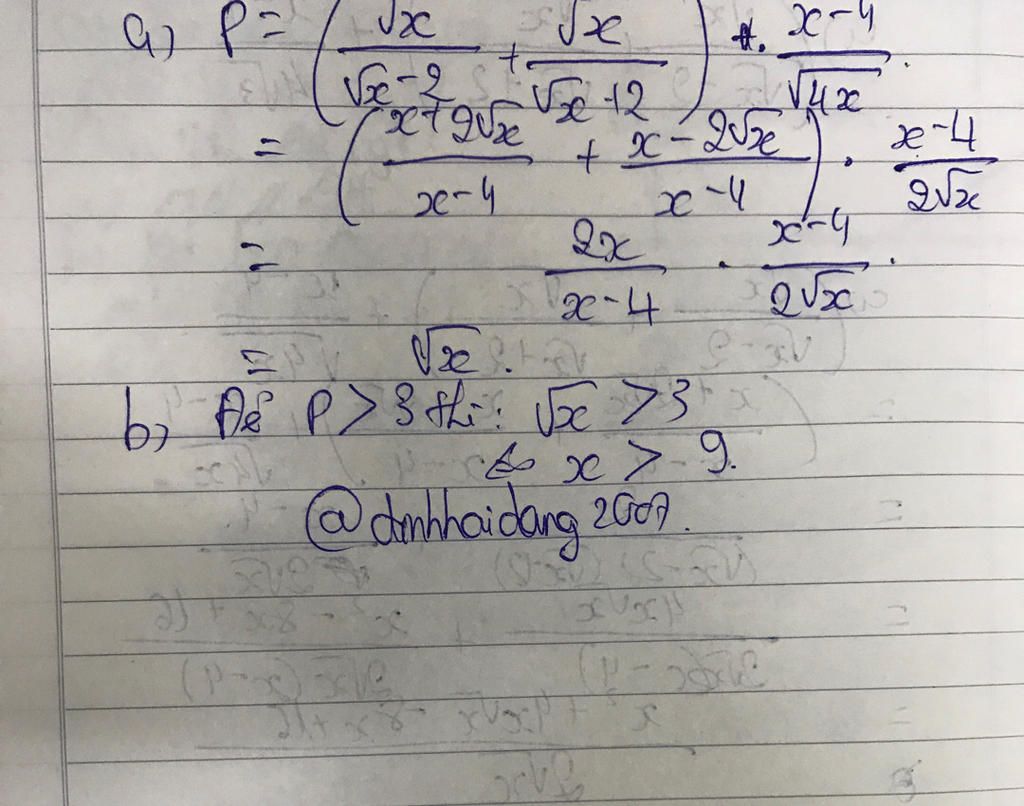 a) P = (√x/(√x-2) + √x/(√x+2)) . (x-4)/√(4x) .
= ((x+2√x)/(x-4) + (x-2√x)/(x-4)) . (x-4)/(2√x)
= 2x/(x-4) . (x-4)/(2√x) .
= √x .
b) Để P > 3 thì : √x > 3
⇔ x > 9.
@dinhhaidang2007.